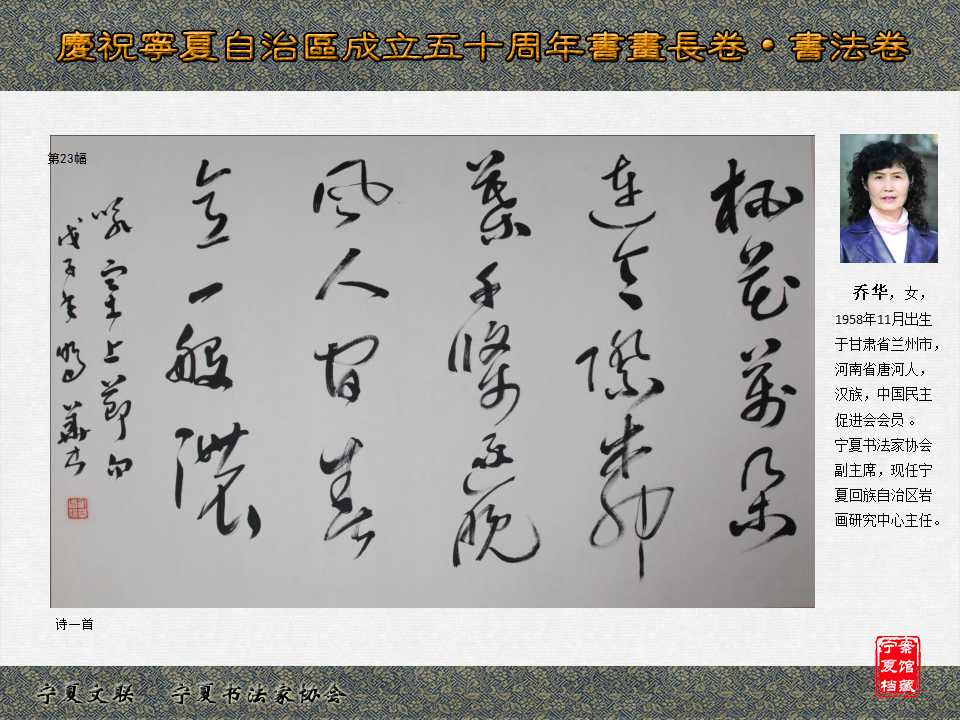 慶祝寧夏自治區成立五十周年書畫長卷·書法卷
第23幅
花萬朵
連雲際柳
葉千條晚
風人間春
意一般濃
塞上
戊子年華書
诗一首
乔华，女，
1958年11月出生
于甘肃省兰州市，
河南省唐河人，
汉族，中国民主
促进会会员。
宁夏书法家协会
副主席，现任宁
夏回族自治区岩
画研究中心主任。
宁夏文联 宁夏书法家协会
宁夏档案馆藏